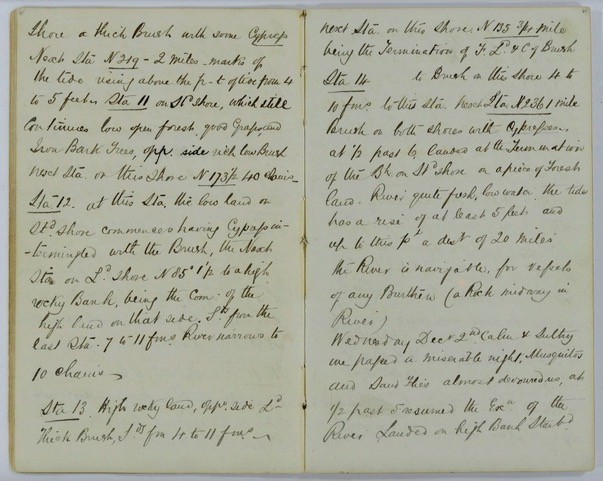 Shore a thick Brush with some Cypress
Next Sta N 219 - 2 miles - marks of
the tide rising above the p-t of tide from 4
to 5 feet. Sta 11 on St.d Shore, which still
Continues low open forest, good Grass and
Iron Bark Trees, opp. side rich low Brush
next Sta. on this Shore N 173½ 40 Chains -
Sta 12. at this Sta. the low land on
St.d Shore commences having Cypress in-
-termingled with the Brush, the Next
Sta on L.d Shore N 85° 1½ to a high
rocky Bank, being the Com.t of the
high land on that side. S.ds from the
last Sta. 7 to 11 fms. River narrows to
10 Chains
Sta 13. High rocky Land, opp. side L.d
Thick Brush, S.ds fm 4 to 11 fms.
next Sta. on this Shore N 135 3/4 mile
being the Termination of F. L.d & C of Brush
Sta 14 to Brush on this shore 4 to
10 fms. to this Sta. Next Sta N 236 1 mile
Brush on both shores with Cypresses,
at ½ past 6 landed at the Termination
of the Bh. on St.d shore on a piece of Forest
land. River quite fresh, low water the tide
has a rise of at least 5 feet and
up to this pt a dist of 20 miles
the River is navigable, for Vessels
of any Burthen (a Rock midway in
River)
Wednesday Decr 2nd Calm & Sultry
we passed a miserable night, Musquitos
and Sand flies almost devoured us, at
½ past 5 resumed the Exn of the
River Landed on high Bank Starbd